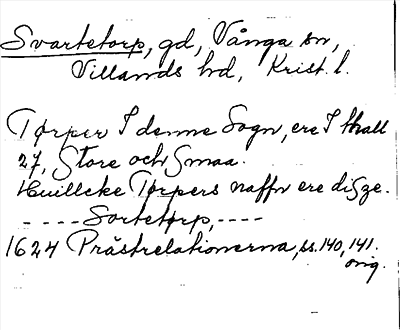 Svartetorp, gd, Vånga sn,
Villands hd, Krist. l.
Tørper I denne Sogn, ere I thall
27, Store och Smaa.
Huillcke Tørpers naffn ere disze.
----Sortetørp,----
1624 Prästrelationerna, ss. 140, 141.
orig.